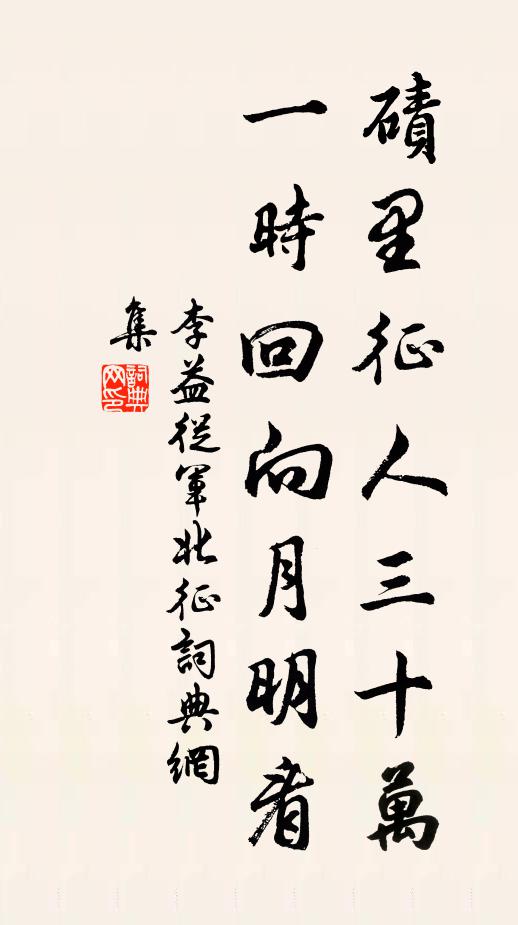 磧里征人三十萬
一時回向月明看
李益從軍北征詞典網
集
詞典網印